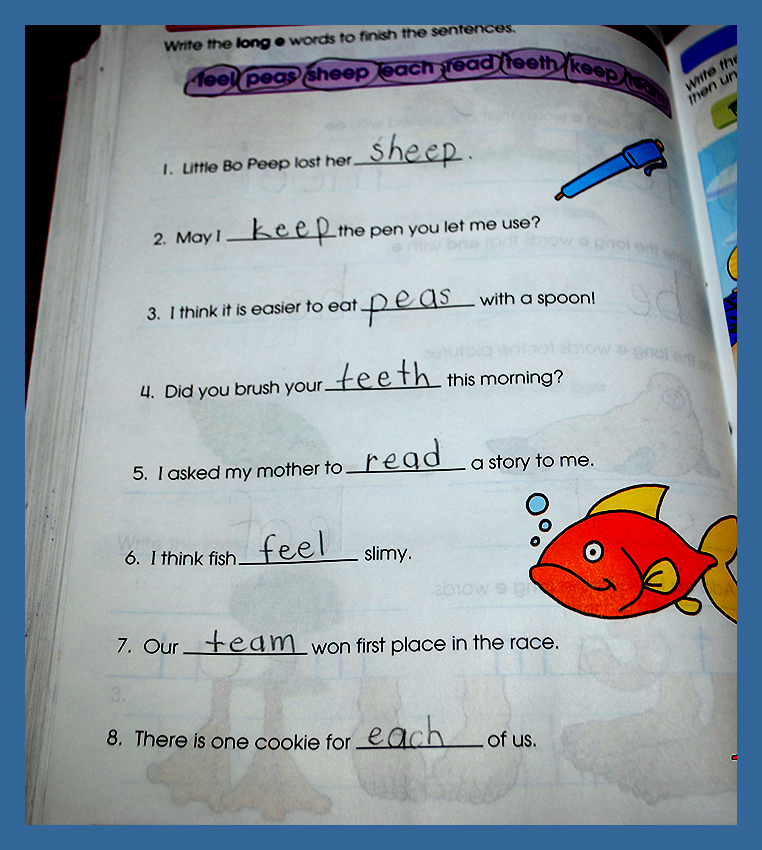 Write the long e words to finish the sentences.
feel peas sheep each read teeth keep team
1. Little Bo Peep lost her sheep.
2. May I keep the pen you let me use?
3. I think it is easier to eat peas with a spoon!
4. Did you brush your teeth this morning?
5. I asked my mother to read a story to me.
6. I think fish feel slimy.
7. Our team won first place in the race.
8. There is one cookie for each of us.
Write the
then un